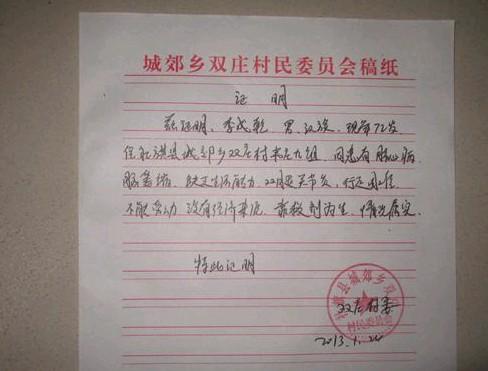 城郊乡双庄村民委员会稿纸
证 明
兹证明、李成乾 男、汉族、现年72岁
住社旗县城郊乡双庄村 九组 因患有 脑
缺乏生活能力、 关节炎、行走困难
不能劳动 没有经济来源 靠救 为生、情况属实
特此证明
社旗县城郊乡双庄村民委员会
双庄村委
2013.1.24